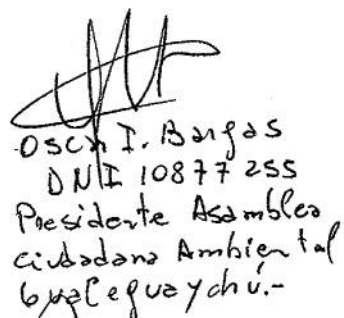 Oscar I. Bargas
DNI 10877255
Presidente Asamblea
ciudadana Ambiental
Gualeguaychú.-